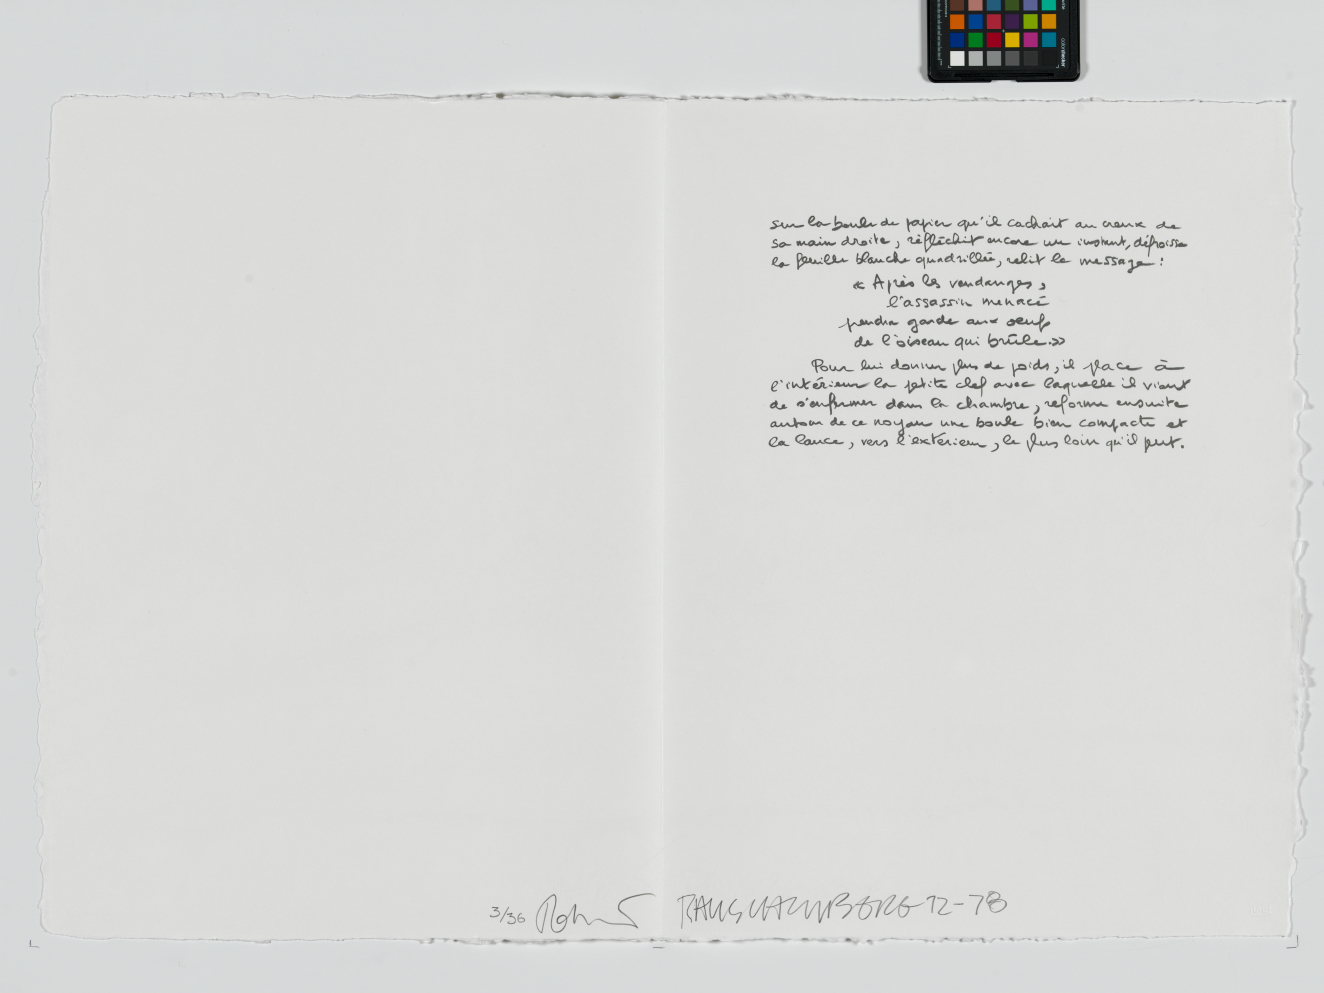 sur la boule de papier qu'il cachait au creux de
sa main droite, réfléchit encore un instant, défroisse
la feuille blanche quadrillée, relit le message :
« Après les vendanges,
l'assassin menacé
prendra garde aux oeufs
de l'oiseau qui brûle. »
Pour lui donner plus de poids, il place à
l'intérieur la petite clef avec laquelle il vient
de s'enfermer dans la chambre, reforme ensuite
autour de ce noyau une boule bien compacte et
la lance, vers l'extérieur, le plus loin qu'il peut.
3/36 Robert RAUSCHENBERG 72-78